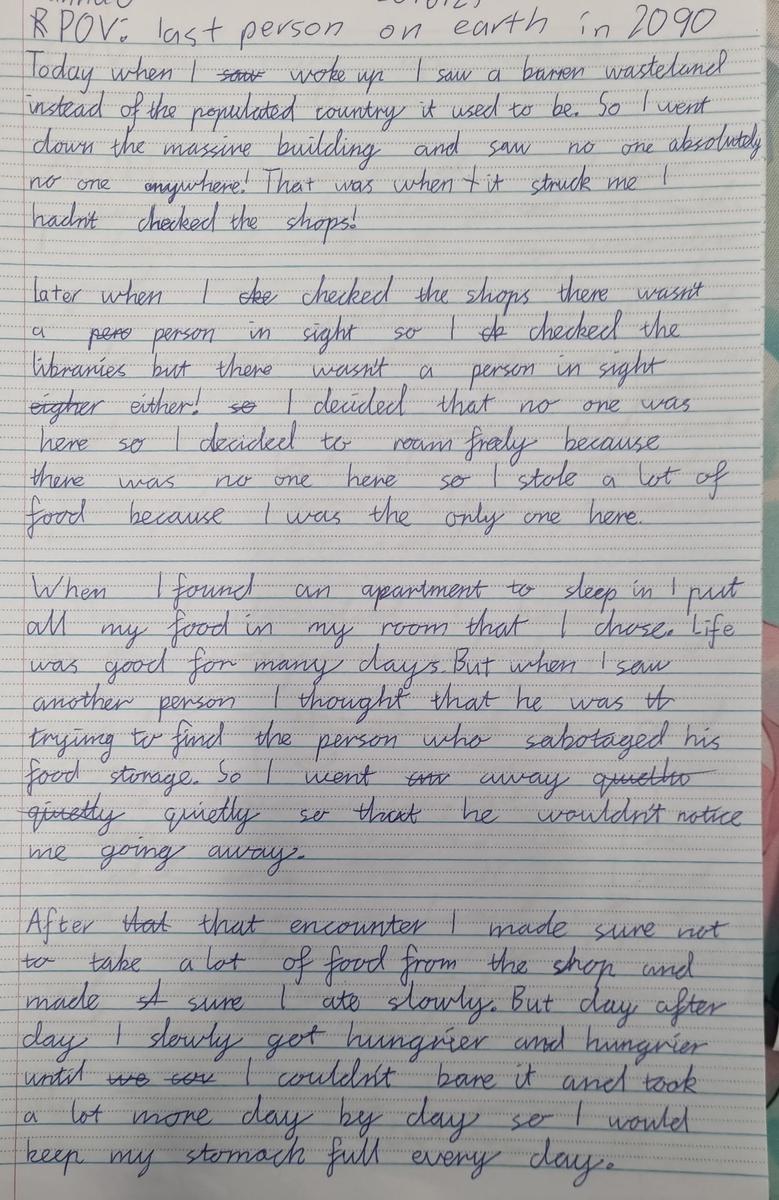 POV: last person on earth in 2090
Today when I saw woke up I saw a barren wasteland
instead of the populated country it used to be. So I went
down the massive building and saw no one absolutely
no one anywhere! That was when it struck me I
hadn't checked the shops!
Later when I che checked the shops there wasn't
a pero person in sight so I ch checked the
libraries but there wasn't a person in sight
eigher either! so I decided that no one was
here so I decided to roam freely because
there was no one here so I stole a lot of
food because I was the only one here.
When I found an apartment to sleep in I put
all my food in my room that I chose. Life
was good for many days. But when I saw
another person I thought that he was th
trying to find the person who sabotaged his
food storage. So I went away quietlo
quietly quietly so that he wouldn't notice
me going away.
After that that encounter I made sure not
to take a lot of food from the shop and
made sure I ate slowly. But day after
day I slowly got hungrier and hungrier
until we cou I couldn't bare it and took
a lot more day by day so I would
keep my stomach full every day.